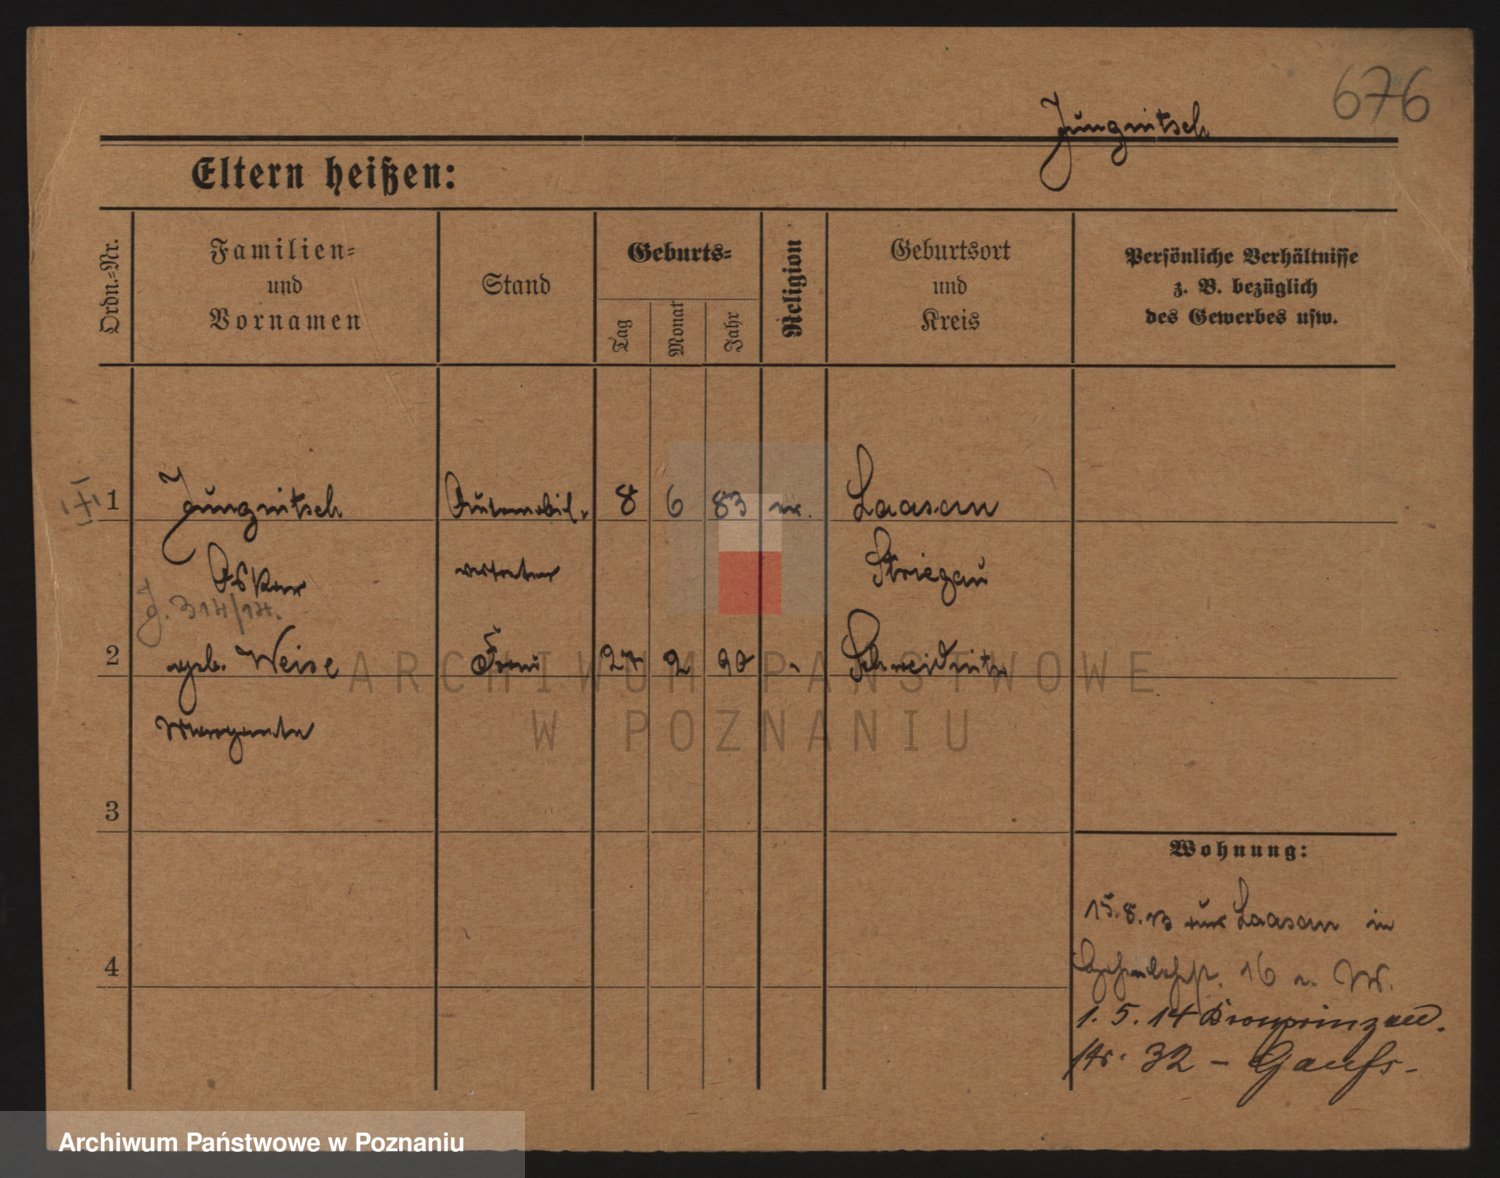 676
Jungnitsch
Eltern heißen:
Ordn.-Nr.
Familien-
und
Vornamen
Stand
Geburts-
Tag
Monat
Jahr
Religion
Geburtsort
und
Kreis
Persönliche Verhältnisse
z. B. bezüglich
des Gewerbes usw.
1 Jungnitsch Automobil- 8 6 83 Laasan
Oskar vertreter Striegau
J. 314/14.
2 geb. Weise Frau 27 2 90 " Schweidnitz
Margarete
ARCHIWUM PAŃSTWOWE
W POZNANIU
3
Wohnung:
15.8.13 aus Laasan in
4
16
1. 5. 14 Kronprinzen
str. 32 –
Archiwum Państwowe w Poznaniu